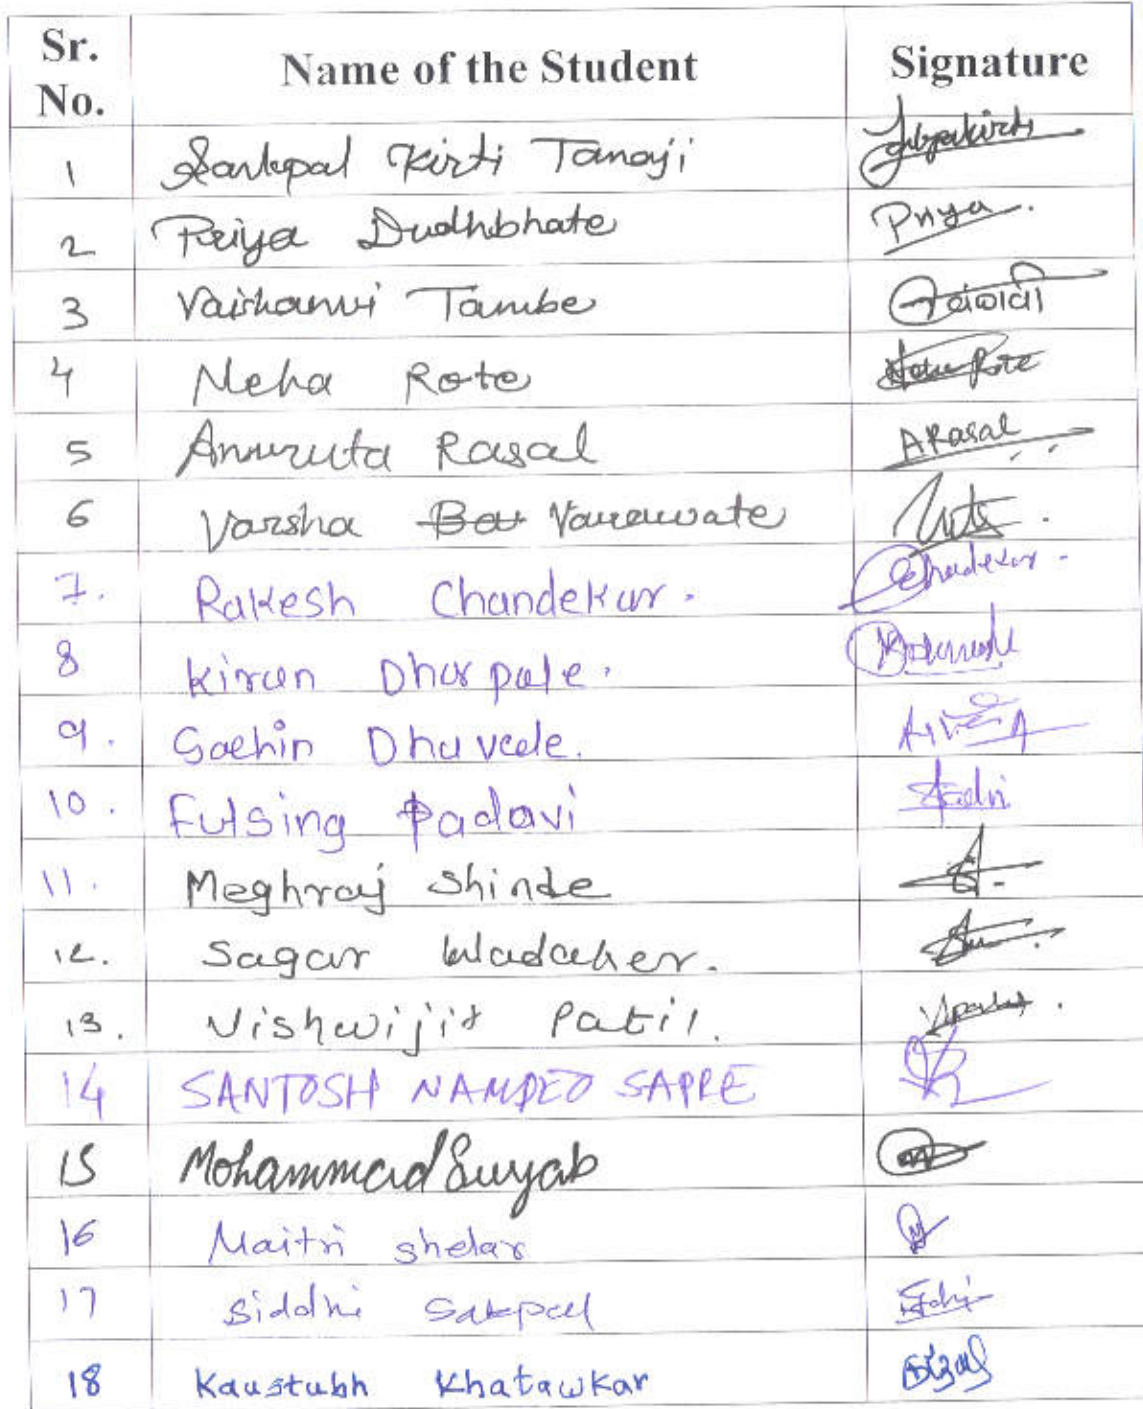 Sr. No. Name of the Student Signature
1 Sankpal Kirti Tanaji
2 Priya Dudhbhate Priya.
3 Vaishanvi Tambe
4 Neha Rote Neha Rote
5 Amruta Rasal ARasal
6 Varsha Vanawate
7. Rakesh Chandekar. Chandekar.
8 Kiran Dharpale.
9. Sachin Dhavale.
10. Fulsing Padavi
11. Meghraj Shinde
12. Sagar Wadaker.
13. Vishwijit Patil.
14 SANTOSH NAMDEO SAPRE
15 Mohammad Suyab
16 Maitri shelar
17 Siddhi Sakpal
18 Kaustubh Khatawkar